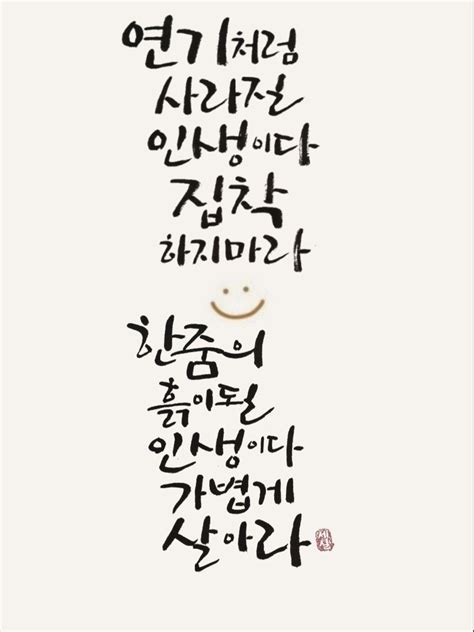 연기처럼
사라질
인생이다
집착
하지마라
한줌의
흙이될
인생이다
가볍게
살아라